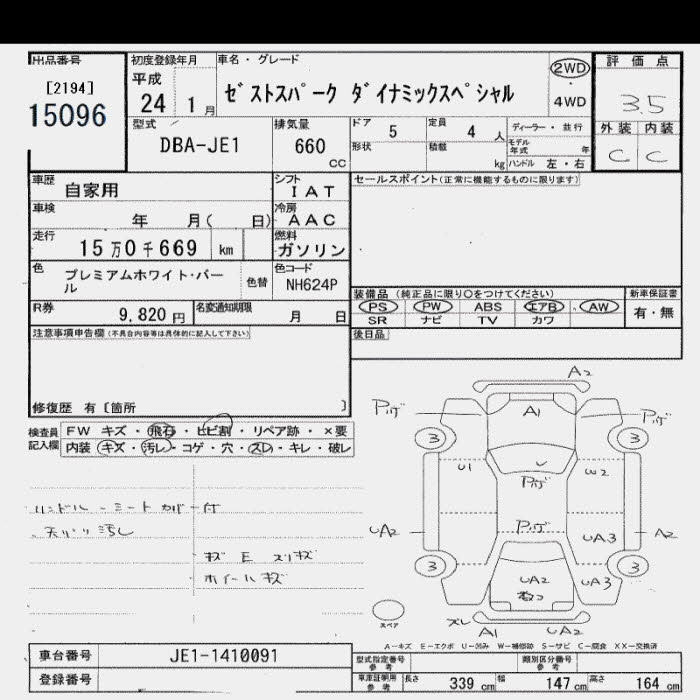 出品番号
[2194]
15096
初度登録年月
平成
24 1月
車名・グレード
ゼストスパーク ダイナミックスペシャル
2WD
4WD
評価点
3.5
外装 内装
C C
型式
DBA-JE1
排気量
660
CC
ドア
5
定員
4 人
形状
積載
kg
ディーラー・並行
モデル年式 年
ハンドル 左・右
車歴 自家用
シフト
IAT
セールスポイント(正常に機能するものに限ります)
車検
年 月( 日)
冷房
AAC
走行
15万0千669 km
燃料
ガソリン
色
プレミアムホワイト・パール
色替
色コード
NH624P
装備品(純正品に限り○をつけてください)
新車保証書
PS PW ABS エアB AW
有・無
SR ナビ TV カワ
R券
9,820 円
名変通知期限
月 日
後日品
注意事項申告欄(不具合内容等は具体的に記入して下さい)
修復歴 有〔箇所 〕
検査員記入欄
FW キズ・飛石・ヒビ割・リペア跡・×要
内装 キズ・汚レ・コゲ・穴・スレ・キレ・破レ
A2
A1
3 3
U1
U2
UA2
UA3
A2
3 3
UA2
UA3
スレ
A1
UA2
スペア
キズ E スリキズ
ホイールキズ
A-キズ E-エクボ U-凹み W-補修跡 S-サビ C-腐食 XX-交換済
車台番号 JE1-1410091
登録番号
型式指定番号 参考
類別区分番号 参考
車庫証明用 参考
長さ 339 cm
幅 147 cm
高さ 164 cm